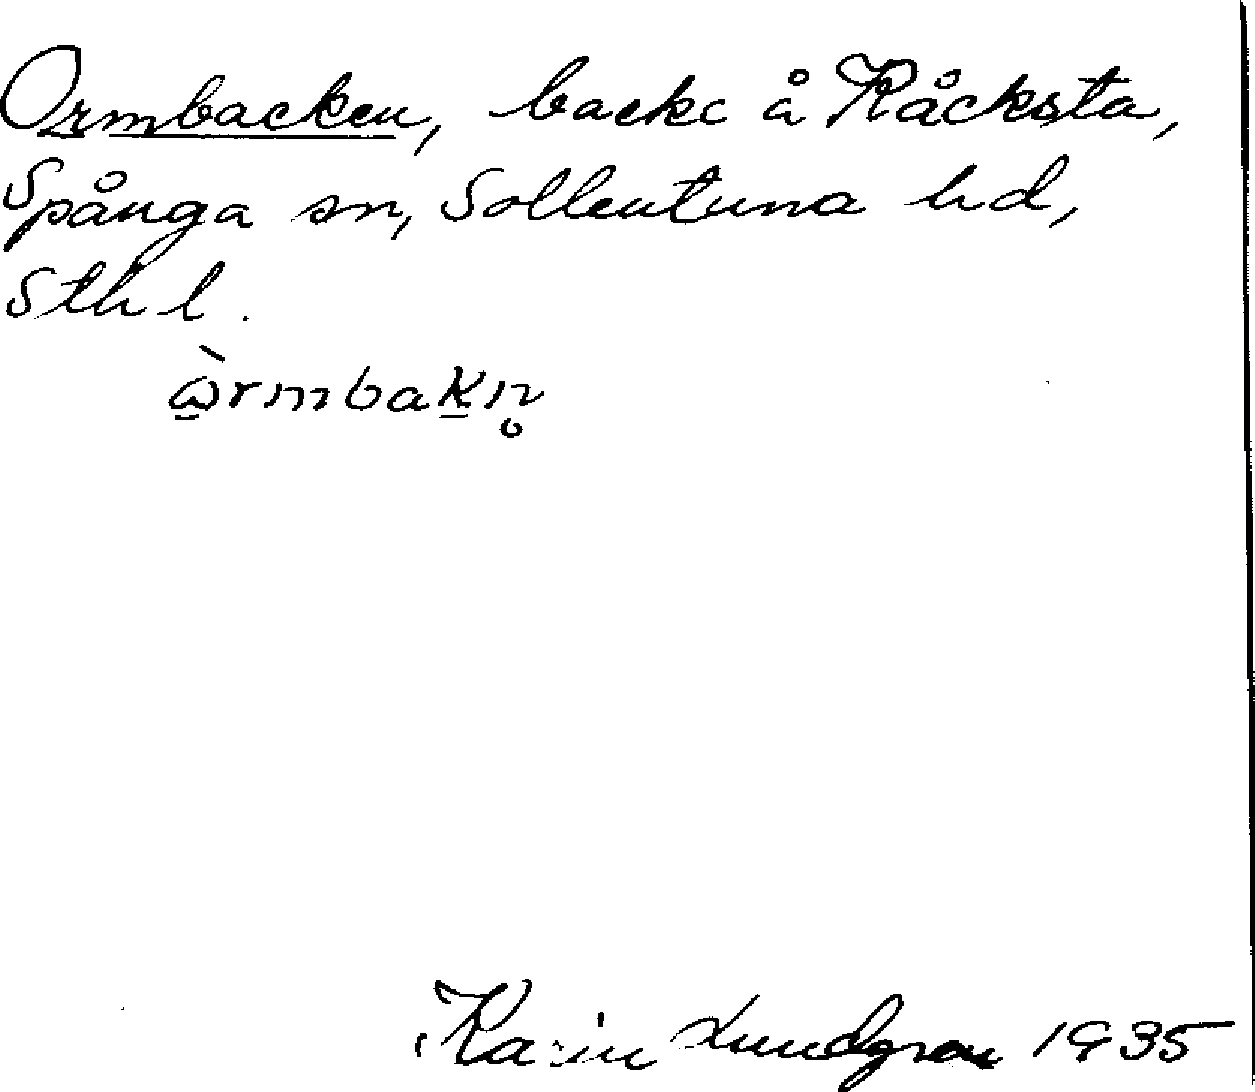 Ormbacken, backe å Råcksta,
Spånga sn, Sollentuna hd,
Sth l.
ὼ̱rmbaḵn̥
Karin Lundgren 1935